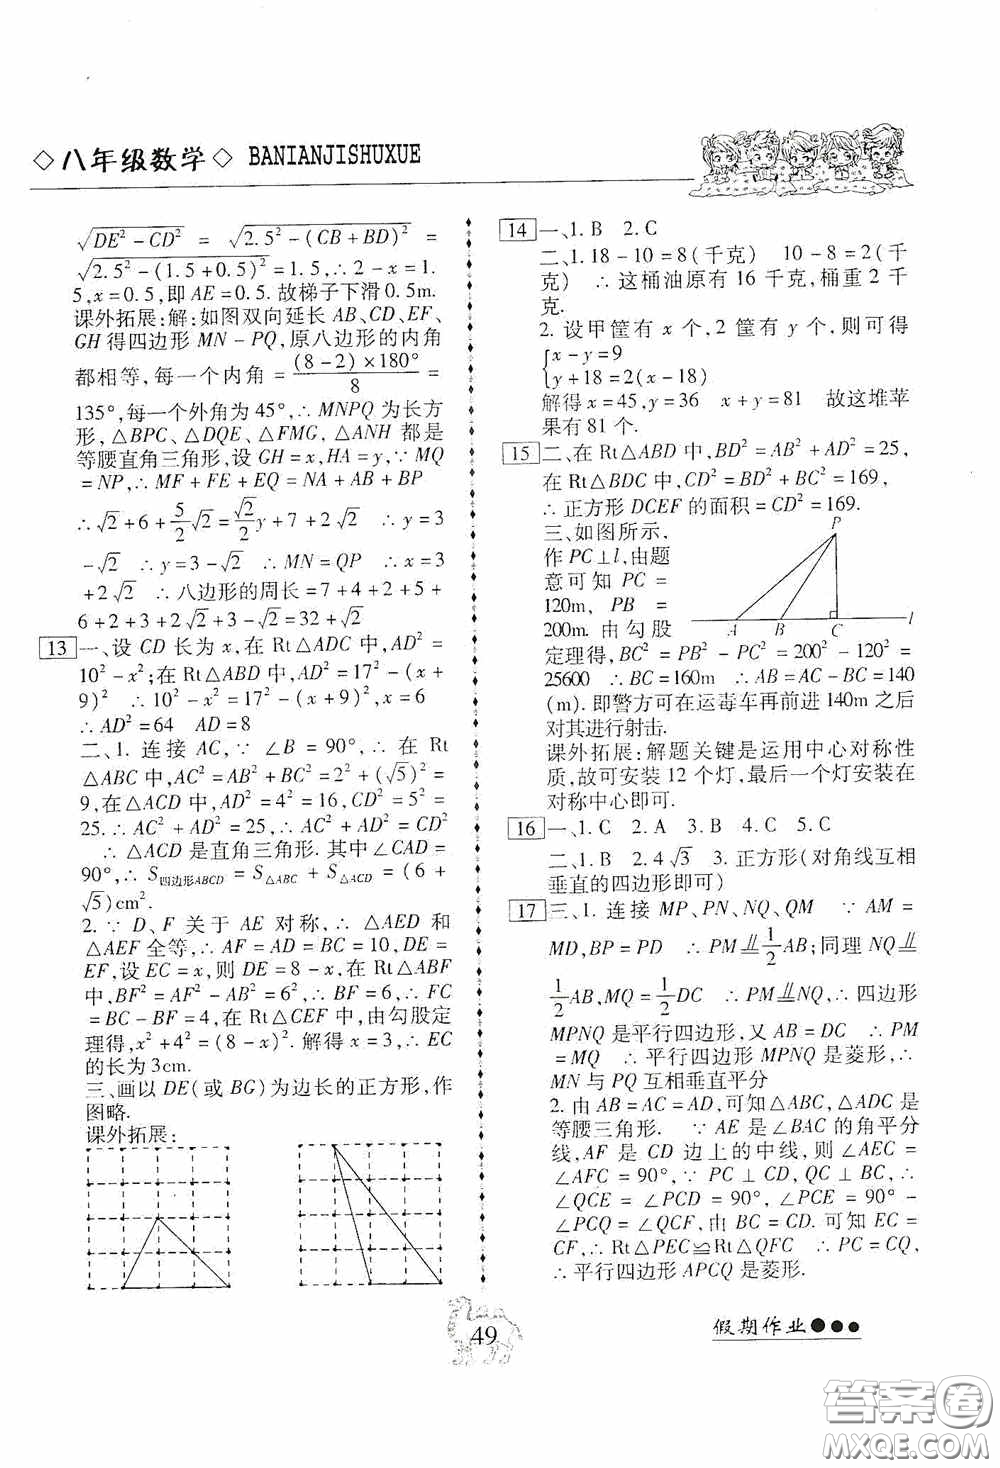 ◇八年级数学◇ BANIANJISHUXUE
√(DE²－CD²) = √(2.5²－(CB＋BD)²) =
√(2.5²－(1.5＋0.5)²)＝1.5,∴2－x＝1.
5,x＝0.5,即 AE＝0.5. 故梯子下滑 0.5m.
课外拓展:解:如图双向延长 AB、CD、EF、
GH 得四边形 MN－PQ,原八边形的内角
都相等,每一个内角＝(8－2)×180°/8＝
135°,每一个外角为 45°,∴MNPQ 为长方
形,△BPC、△DQE、△FMG、△ANH 都是
等腰直角三角形,设 GH＝x,HA＝y,∵MQ
＝NP,∴MF＋FE＋EQ＝NA＋AB＋BP
∴√2＋6＋5/2√2＝√2/2y＋7＋2√2 ∴y＝3
－√2 ∴y＝3－√2 ∴MN＝QP ∴x＝3
＋2√2 ∴八边形的周长＝7＋4＋2＋5＋
6＋2＋3＋2√2＋3－√2＝32＋√2
13 一、设 CD 长为 x,在 Rt△ADC 中,AD²＝
10²－x²;在 Rt△ABD 中,AD²＝17²－(x＋
9)² ∴10²－x²＝17²－(x＋9)²,x＝6
∴AD²＝64 AD＝8
二、1. 连接 AC,∵∠B＝90°,∴在 Rt
△ABC 中,AC²＝AB²＋BC²＝2²＋(√5)²＝
9,在△ACD 中,AD²＝4²＝16,CD²＝5²＝
25.∴AC²＋AD²＝9＋16＝25,∴AC²＋AD²＝CD²
∴△ACD 是直角三角形. 其中∠CAD＝
90°,∴S四边形ABCD＝S△ABC＋S△ACD＝(6＋
√5)cm².
2.∵D、F 关于 AE 对称,∴△AED 和
△AEF 全等,∴AF＝AD＝BC＝10,DE＝
EF,设 EC＝x,则 DE＝8－x,在 Rt△ABF
中,BF²＝AF²－AB²＝6²,∴BF＝6,∴FC
＝BC－BF＝4,在 Rt△CEF 中,由勾股定
理得,x²＋4²＝(8－x)². 解得 x＝3,∴EC
的长为 3cm.
三、画以 DE(或 BG)为边长的正方形,作
图略.
课外拓展:
14 一、1.B 2.C
二、1.18－10＝8(千克) 10－8＝2(千
克) ∴这桶油原有 16 千克,桶重 2 千
克.
2. 设甲筐有 x 个,2 筐有 y 个,则可得
{x－y＝9
{y＋18＝2(x－18)
解得 x＝45,y＝36 x＋y＝81 故这堆苹
果有 81 个.
15 二、在 Rt△ABD 中,BD²＝AB²＋AD²＝25,
在 Rt△BDC 中,CD²＝BD²＋BC²＝169,
∴正方形 DCEF 的面积＝CD²＝169.
三、如图所示,
作 PC⊥l,由题
意可知 PC＝
120m, PB＝
200m. 由勾股
定理得,BC²＝PB²－PC²＝200²－120²＝
25600 ∴BC＝160m ∴AB＝AC－BC＝140
(m). 即警方可在运毒车再前进 140m 之后
对其进行射击.
P
A B C l
课外拓展:解题关键是运用中心对称性
质,故可安装 12 个灯,最后一个灯安装在
对称中心即可.
16 一、1.C 2.A 3.B 4.C 5.C
二、1.B 2.4√3 3.正方形(对角线互相
垂直的四边形即可)
17 三、1. 连接 MP、PN、NQ、QM ∵AM＝
MD,BP＝PD ∴PM⫫1/2AB;同理 NQ⫫
1/2AB,MQ＝1/2DC ∴PM⫫NQ,∴四边形
MPNQ 是平行四边形,又 AB＝DC ∴PM
＝MQ ∴平行四边形 MPNQ 是菱形,∴
MN 与 PQ 互相垂直平分
2. 由 AB＝AC＝AD,可知△ABC,△ADC 是
等腰三角形. ∵AE 是∠BAC 的角平分
线,AF 是 CD 边上的中线,则∠AEC＝
∠AFC＝90°,∵PC⊥CD,QC⊥BC,∴
∠QCE＝∠PCD＝90°,∠PCE＝90°－
∠PCQ＝∠QCF,由 BC＝CD. 可知 EC＝
CF,∴Rt△PEC≌Rt△QFC ∴PC＝CQ,
∴平行四边形 APCQ 是菱形.
49
假期作业●●●
答案圈
MXQE.COM